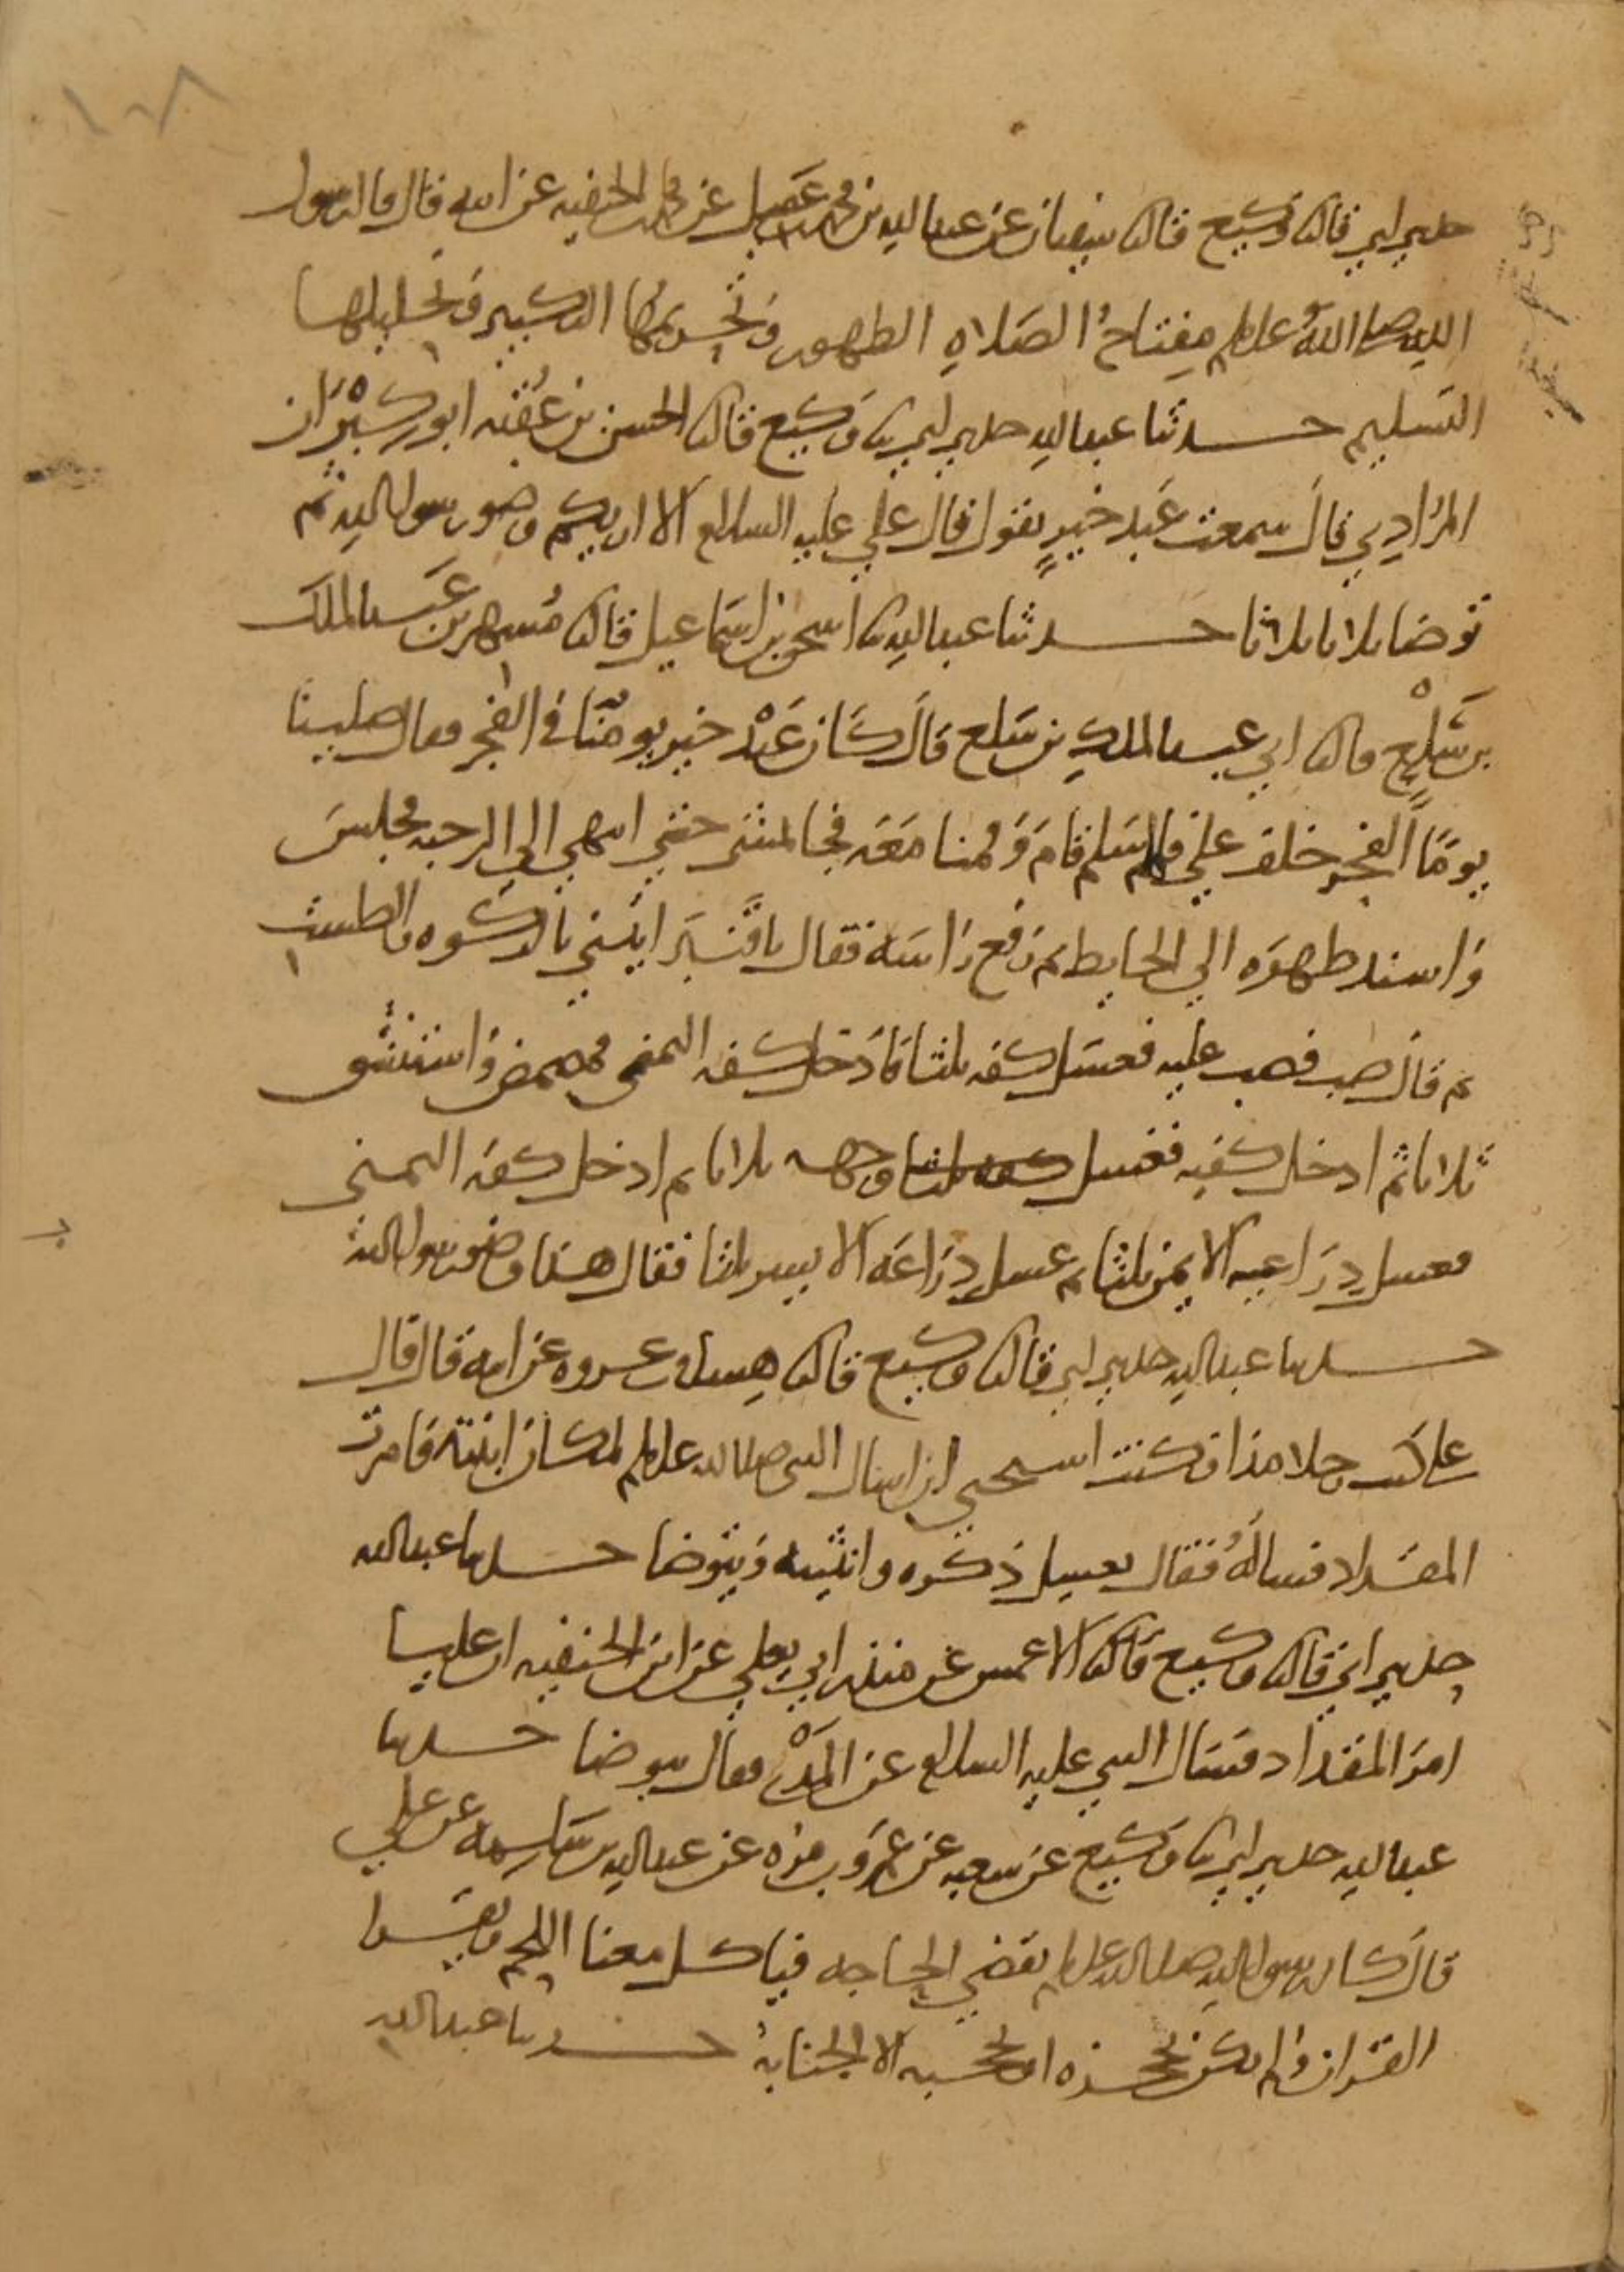 ١٠٨
حدثني ابي قال ثنا وكيع قال ثنا سفيان عن عبد الله بن محمد بن عقيل عن محمد بن الحنفيه عن ابيه قال قال رسول
الله صلى الله عليه وسلم مِفتاحُ الصَلاهِ الطهور وَتحريمُها التكبير وَتحليلها
التسليم حدثنا عبد الله حدثني ابي ثنا وَكيع قال ثنا الحسن بن عُقبه ابو كِبْرَان
المرُادِي قال سمعت عَبد خَيرٍ يقول قال علي عليه السلام الا اريكم وضو رسول الله ثم
توضا ثلاثا ثلاثا حدثنا عبد الله ثنا اسحق بن اسمَاعيل قال ثنا مُسهر بن عَبد الملك
بن سَلْعٍ قال ثنا ابي عبد الملكِ بن سَلع قَالَ كَان عَبْد خير يومنّا في الفجر فقال صلينا
يومًا الفجر خلف علي فلما سَلم قامَ وَقمنا مَعَه فجا يمشي حتي انتهي الي الرحبه فجلسَ
وَاسند ظهرَه الي الحايط ثم رَفع رَاسَه فقال يا قَنبَر ايتني بالركوَه والطست
ثم قال صب فصب عليه فغسَل كفه ثلثا وَادَخل كفه اليمنى فمضمض وَاستنشق
ثلاثا ثم ادخل كفيه فغسل كفه ثلثا وجهه ثلاثا ثم ادخل كفه اليمنى
فغسل ذِرَاعيه الايمن ثلثا ثم غسل ذِرَاعَه الايسر ثلثا فقال هذا وضو رسول الله
حدثنا عبد الله حدثني ابي قال ثنا وكيع قال ثنا هشام بن عروه عن ابيه قال قال
علي كنت رجلا مذا وكنت استحيي ان اسال النبي صلى الله عليه وسلم لمكان ابنته فَامرت
المقدَاد فسالَهُ فقال يغسل ذكره وانثييه وَيتوضا حدثنا عبد الله
حدثني ابي قال ثنا وكيع قَال ثنا الاعمش عن منذر ابي يعلي عن ابن الحنفيه ان عليا
امرَ المقداد فسَال النبي عليه السلام عن المَذْي فقال يتوضا حدثنا
عبد الله حدثني ابي ثنا وَكيع عن شعبه عن عَمرو بن مره عن عبد الله بن سَلِمه عن علي
قال كان رسول الله صلى الله عليه وسلم يقضي الحاجه فياكل معنا اللحم ويقرا
القران وَلم يكن يحجزه او يحجبه الا الجنابهُ حدثنا عبد الله